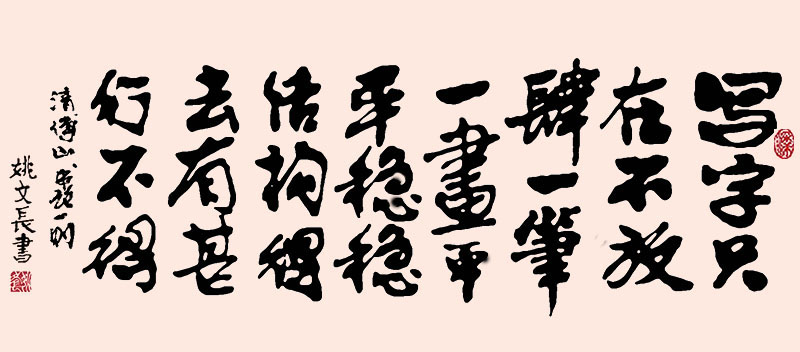 写字只
在不放
肆一筆
一畫平
平穩穩
结构得
去有甚
行不得
清傅山一則
姚文長書